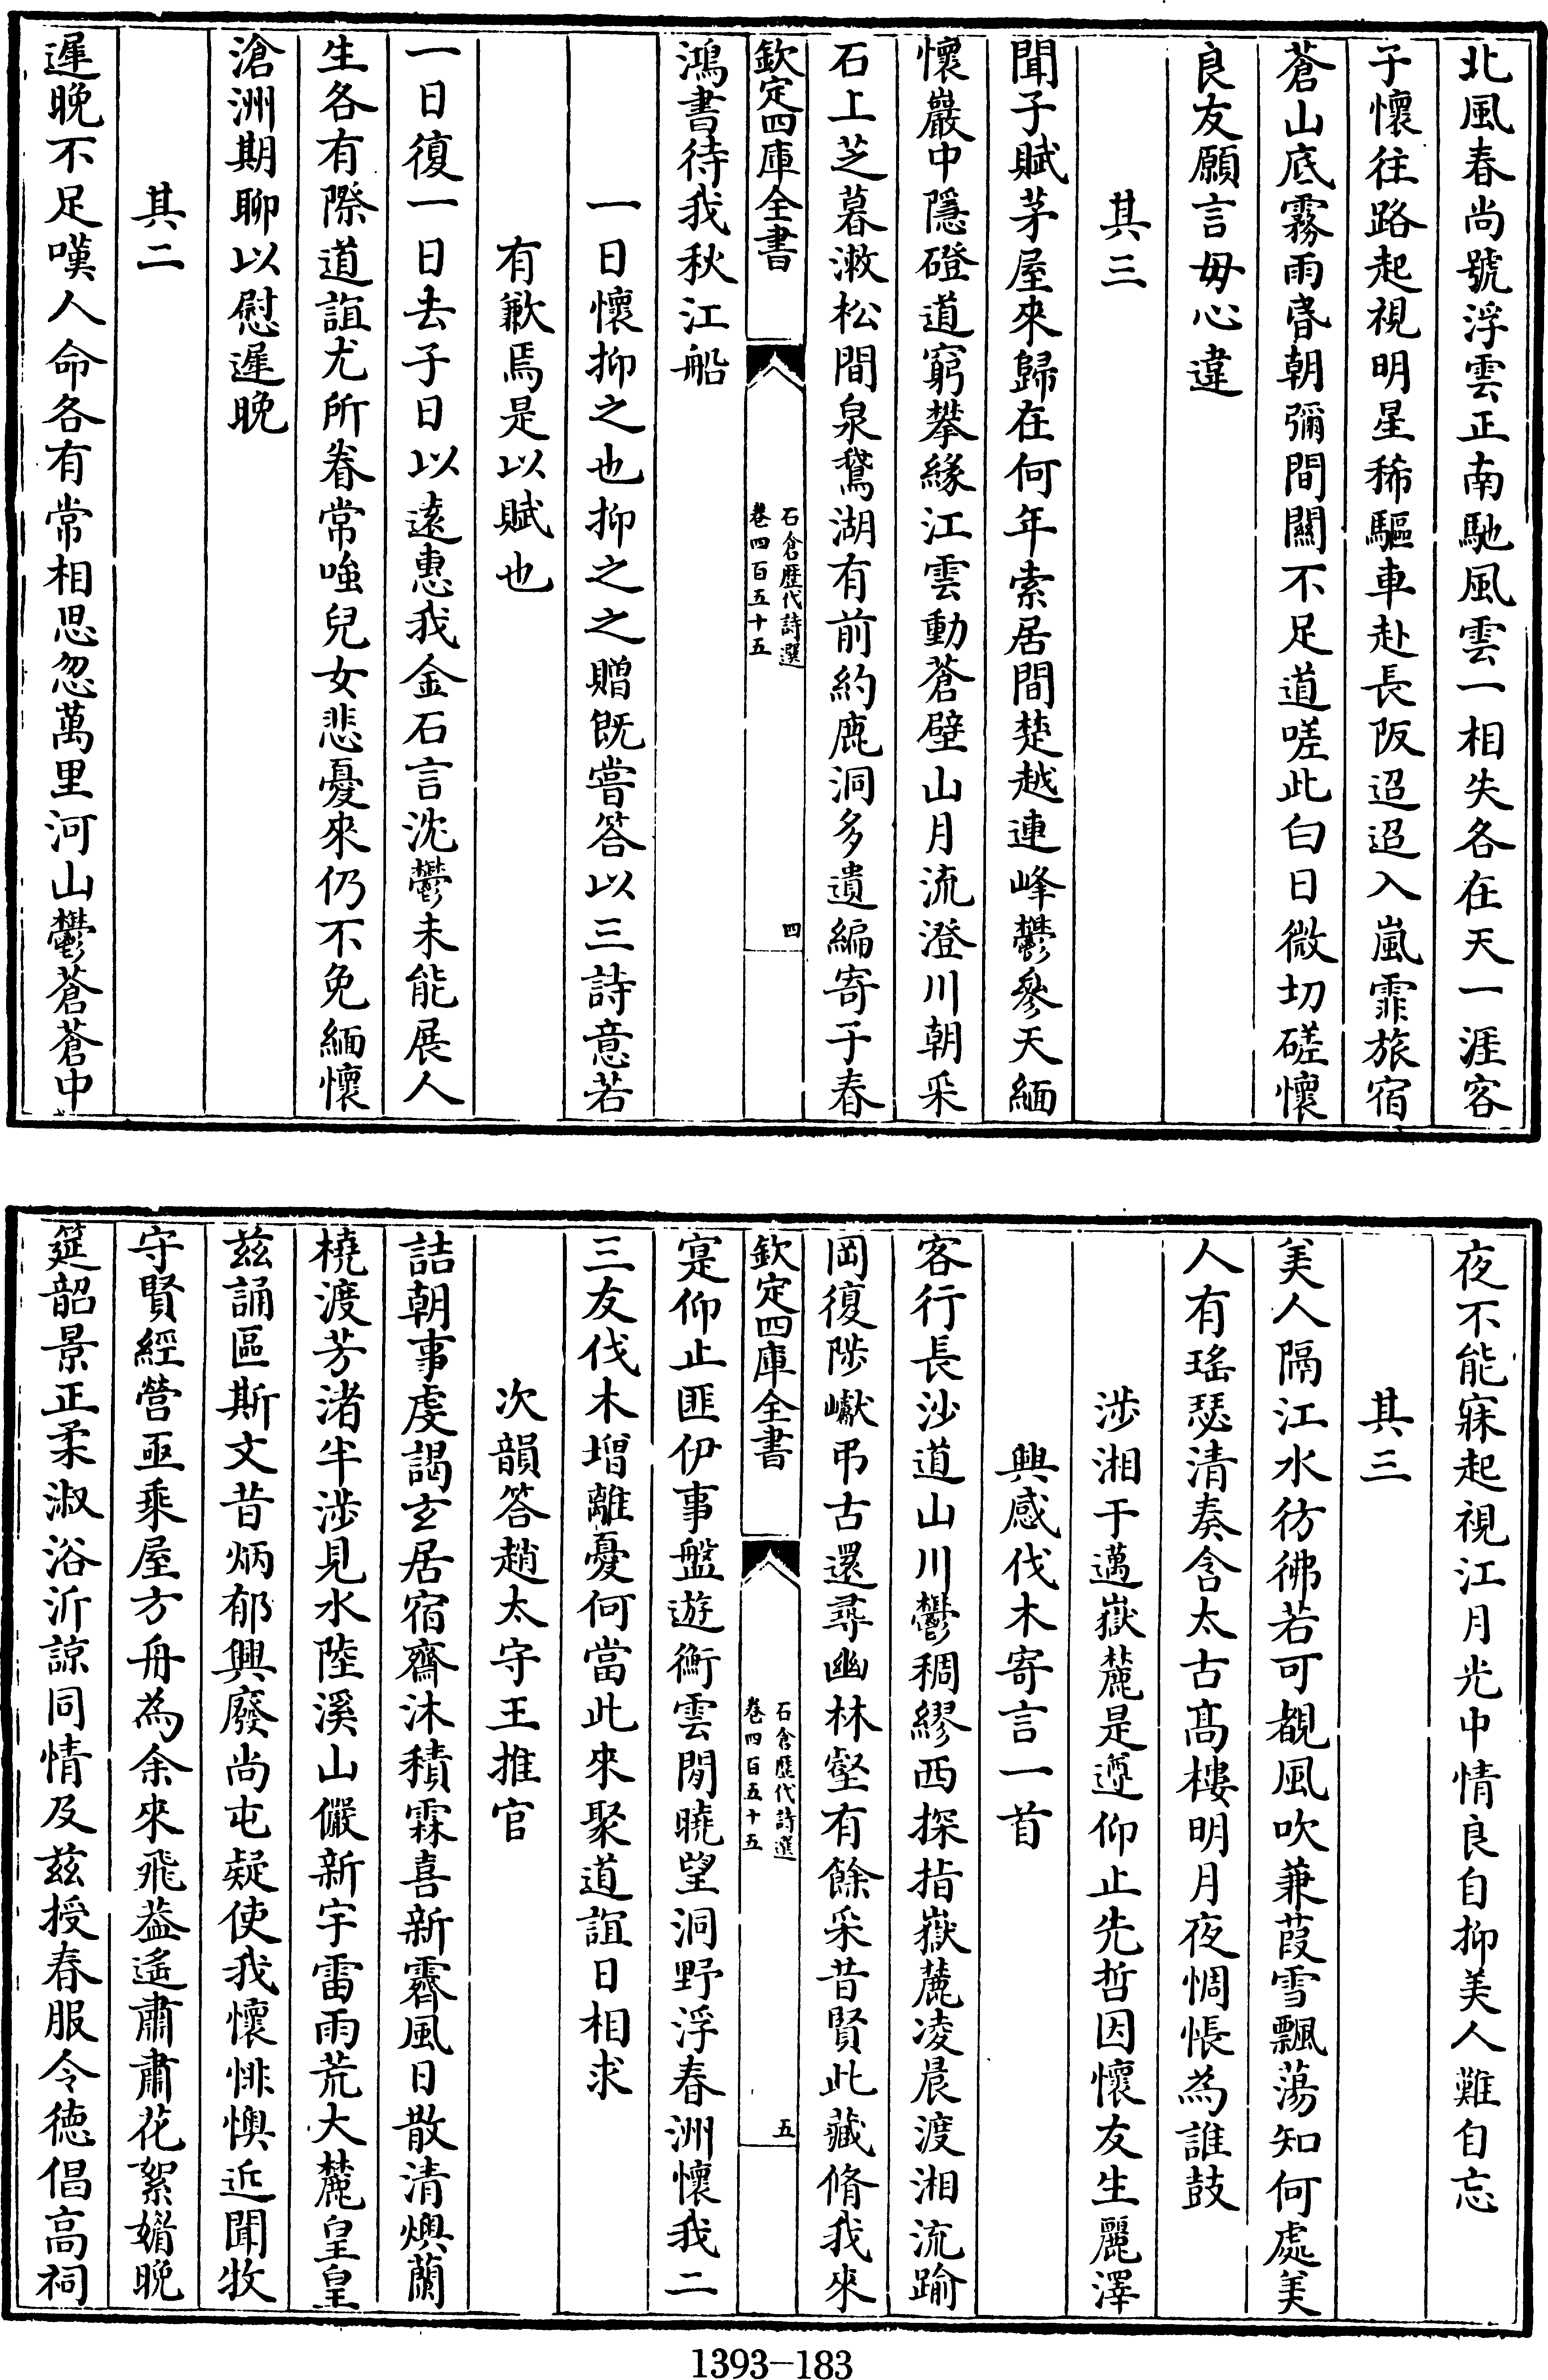 北風春尚號浮雲正南馳風雲一相失各在天一涯客
子懷往路起視明星稀驅車赴長阪迢迢入嵐霏旅宿
蒼山底霧雨昏朝彌間關不足道嗟此白日微切磋懷
良友願言毋心違
其三
聞子賦茅屋來歸在何年索居間楚越連峰鬱參天緬
懷巖中隱磴道窮攀緣江雲動蒼壁山月流澄川朝采
石上芝暮漱松間泉鵞湖有前約鹿洞多遺編寄子春
欽定四庫全書
石倉歷代詩選
卷四百五十五
四
鴻書待我秋江船
一日懷抑之也抑之之贈既嘗答以三詩意若
有歉焉是以賦也
一日復一日去子日以遠惠我金石言沈鬱未能展人
生各有際道誼尤所眷常嗤兒女悲憂來仍不免緬懷
滄洲期聊以慰遲晚
其二
遲晚不足嘆人命各有常相思忽萬里河山鬱蒼蒼中
夜不能寐起視江月光中情良自抑美人難自忘
其三
美人隔江水彷彿若可覩風吹蒹葭雪飄蕩知何處美
人有瑤瑟清奏含太古髙樓明月夜惆悵為誰鼓
涉湘于邁嶽麓是遵仰止先哲因懷友生麗澤
興感伐木寄言一首
客行長沙道山川鬱稠繆西探指嶽麓凌晨渡湘流踰
岡復陟巘弔古還尋幽林壑有餘采昔賢此藏脩我來
寔仰止匪伊事盤遊衡雲閒曉望洞野浮春洲懷我二
三友伐木增離憂何當此來聚道誼日相求
次韻答趙太守王推官
詰朝事虔謁玄居宿齋沐積霖喜新霽風日散清燠蘭
橈渡芳渚半涉見水陸溪山儼新宇雷雨荒大麓皇皇
兹誦區斯文昔炳郁興廢尚屯疑使我懷悱懊近聞牧
守賢經營亟乘屋方舟為余來飛葢遙肅肅花絮媚晚
筵韶景正柔淑浴沂諒同情及兹授春服令德倡高祠
欽定四庫全書
石倉歷代詩選
卷四百五十五
五
1393—183